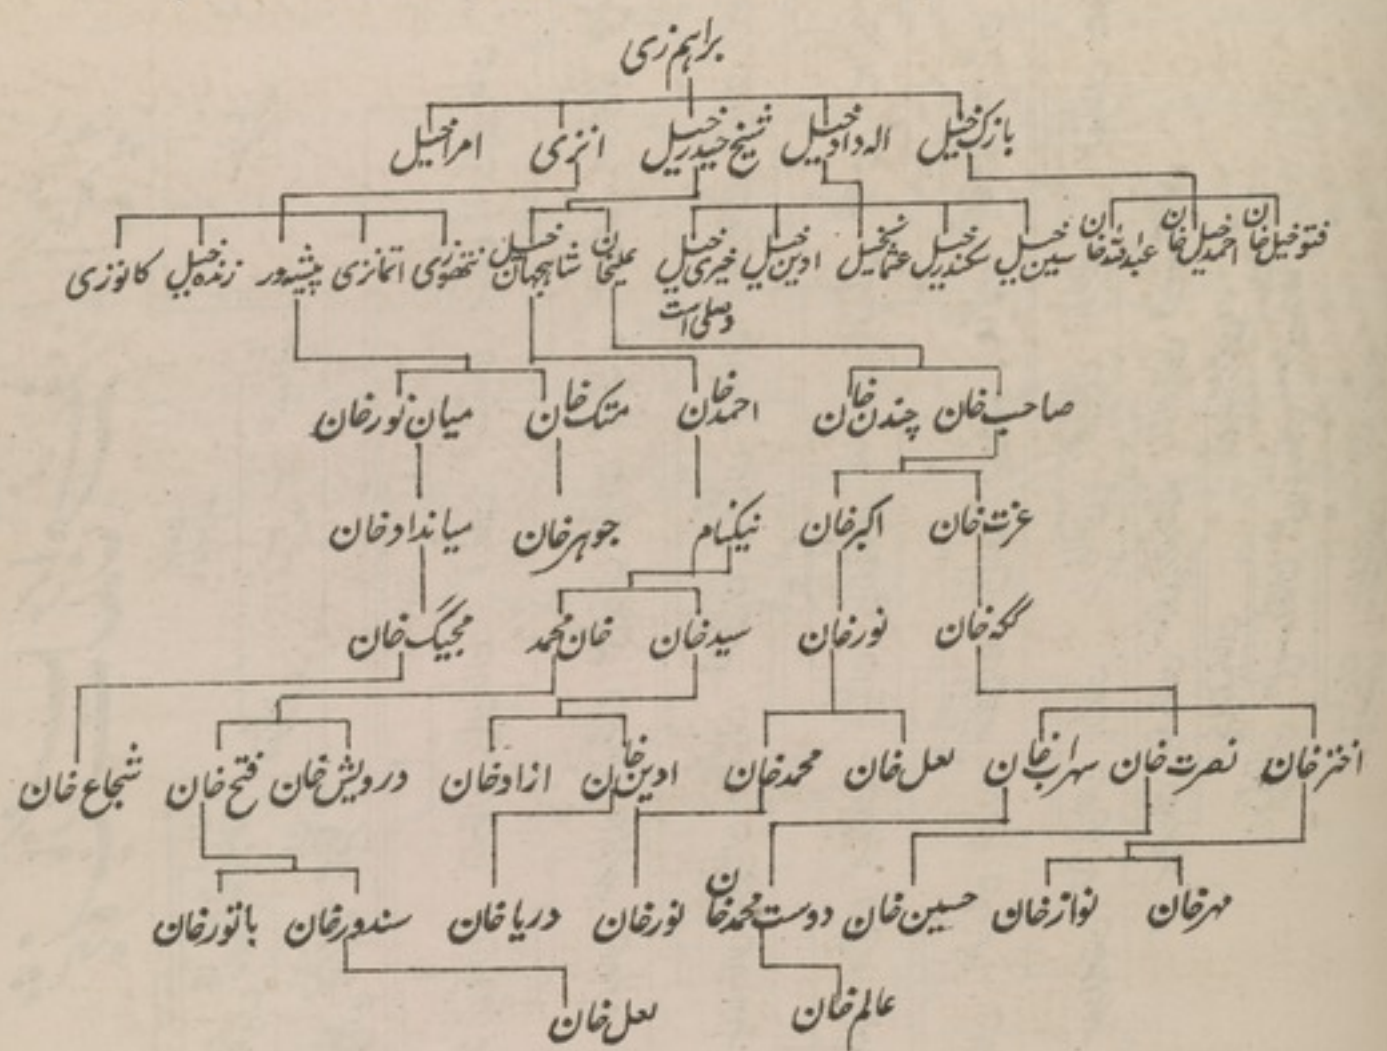 براہم زی
بازک خیل الہ داد خیل شیخ حیدر خیل انزی امرا خیل
فتوخیل خان احمد خیل خان عبداللہ خان سین خیل سکندر خیل عثما نخیل ادین خیل خیری خیل علیخان شاہجہان خیل نتھوزی اتمانزی پیشہ ور زندہ خیل کانوزی
وصلی است
صاحب خان چندن خان احمد خان متک خان میان نور خان
عزت خان اکبر خان نیکنام جوہر خان میانداد خان
ککہ خان نور خان سید خان خان محمد مجیبگ خان
اختر خان نصرت خان سہراب خان لعل خان محمد خان ادین خان ازاد خان درویش خان فتح خان شجاع خان
مہر خان نواز خان حسین خان دوست محمد خان نور خان دریا خان سندور خان باتور خان
عالم خان لعل خان